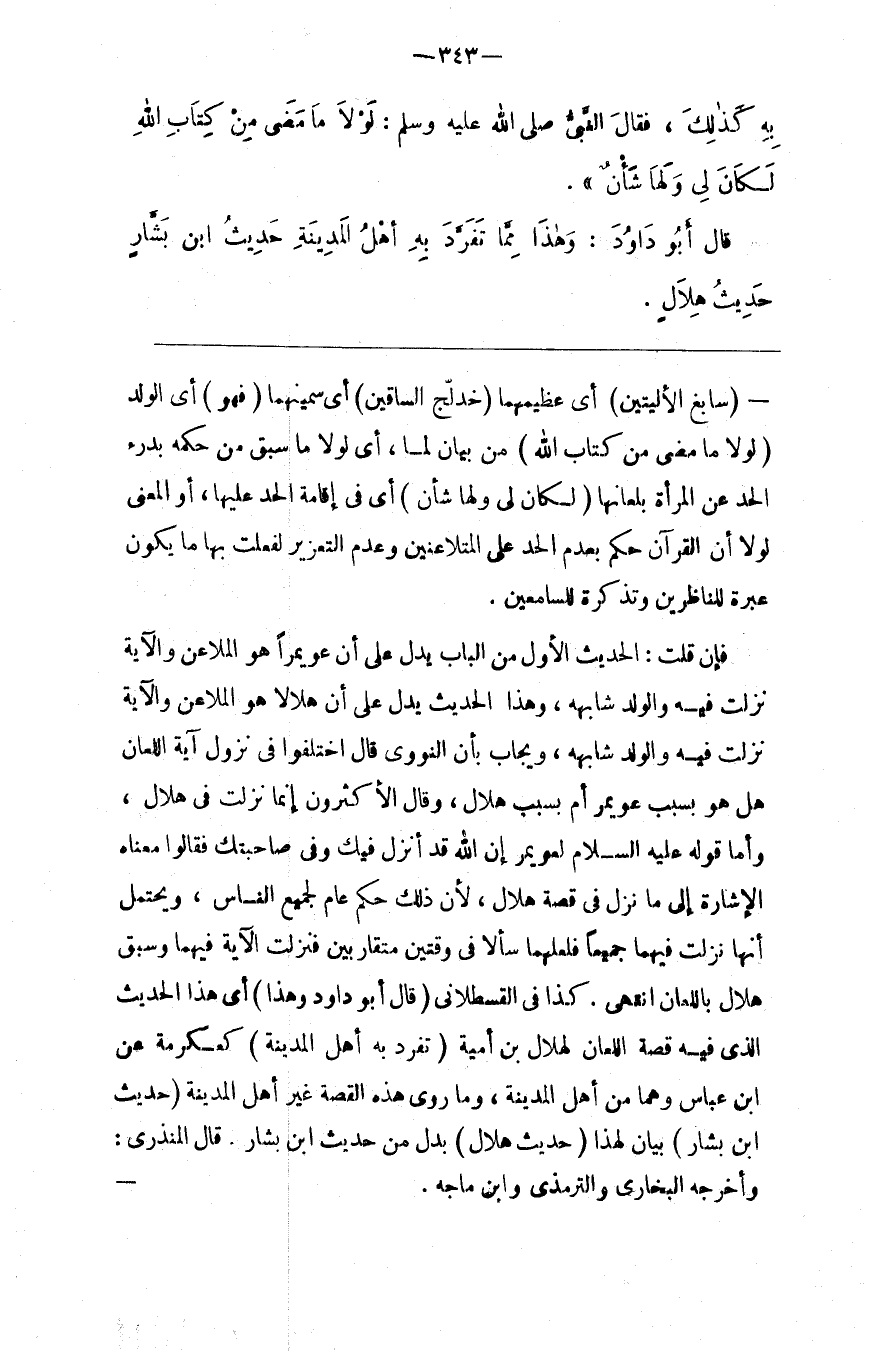 —٣٤٣—
بِهِ كَذٰلِكَ ، فقالَ النَّبيُّ صلى الله عليه وسلم : لَوْلاَ مَا مَضَى مِنْ كِتَابِ اللهِ
لَـكَانَ لِي وَلَهَا شَأْنٌ » .
قال أَبُو دَاوُدَ : وَهٰذَا مِمَّا تَفَرَّدَ بِهِ أَهْلُ المَدِينَةِ حَدِيثُ ابن بَشَّارٍ
حَدِيثُ هِلاَلٍ .
— (سابغ الأليتين) أى عظيمهما (خدلّج الساقين) أى سمينهما (فهو) أى الولد
( لولا ما مضى من كتاب الله ) من بيان لمـا ، أى لولا ما سبق من حكمه بدرء
الحد عن المرأة بلعانها ( لـكان لى ولها شأن ) أى فى إقامة الحد عليها ، أو المعنى
لولا أن القرآن حكم بعدم الحد على المتلاعنين وعدم التعزير لفعلت بها ما يكون
عبرة للناظرين وتذكرة للسامعين .
فإن قلت : الحديث الأول من الباب يدل على أن عويمراً هو الملاعن والآية
نزلت فيـه والولد شابهه ، وهذا الحديث يدل على أن هلالا هو الملاعن والآية
نزلت فيـه والولد شابهه ، ويجاب بأن النووى قال اختلفوا فى نزول آية اللعان
هل هو بسبب عويمر أم بسبب هلال ، وقال الأكثرون إنما نزلت فى هلال ،
وأما قوله عليه السـلام لعويمر إن الله قد أنزل فيك وفى صاحبتك فقالوا معناه
الإشارة إلى ما نزل فى قصة هلال ، لأن ذلك حكم عام لجميع النـاس ، ويحتمل
أنها نزلت فيهما جميعاً فلعلهما سألا فى وقتين متقاربين فنزلت الآية فيهما وسبق
هلال باللعان انتهى . كذا فى القسطلانى ( قال أبو داود وهذا ) أى هذا الحديث
الذى فيـه قصة اللعان لهلال بن أمية ( تفرد به أهل المدينة ) كعـكرمة عن
ابن عباس وهما من أهل المدينة ، وما روى هذه القصة غير أهل المدينة (حديث
ابن بشار ) بيان لهذا ( حديث هلال ) بدل من حديث ابن بشار . قال المنذرى :
وأخرجه البخارى والترمذى وابن ماجه . —